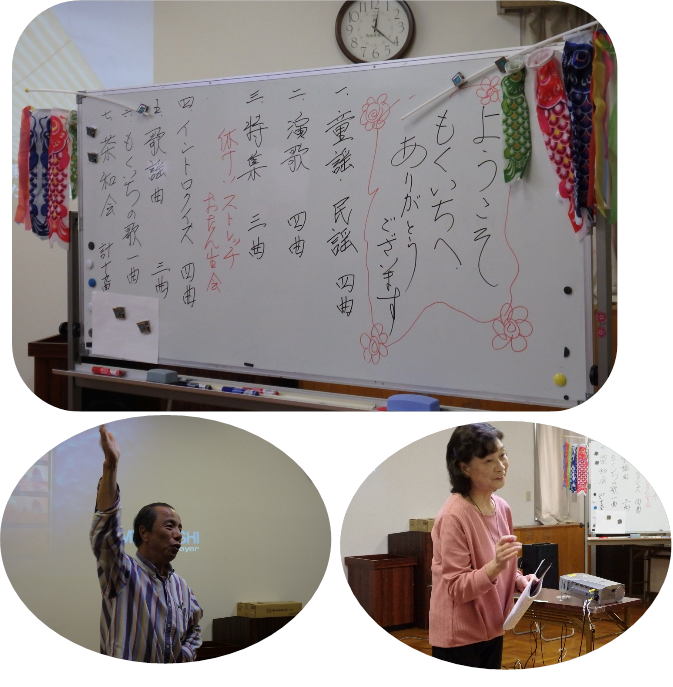 ようこそ
もくいちへ
ありがとう
ございます
一、童謡・民謡 四曲
二、演歌 四曲
三、特集 三曲
休けい ストレッチ
おたん生会
四、イントロクイズ 四曲
五、歌謡曲 三曲
もくいちの歌 一曲
茶和会
GHI
ayer